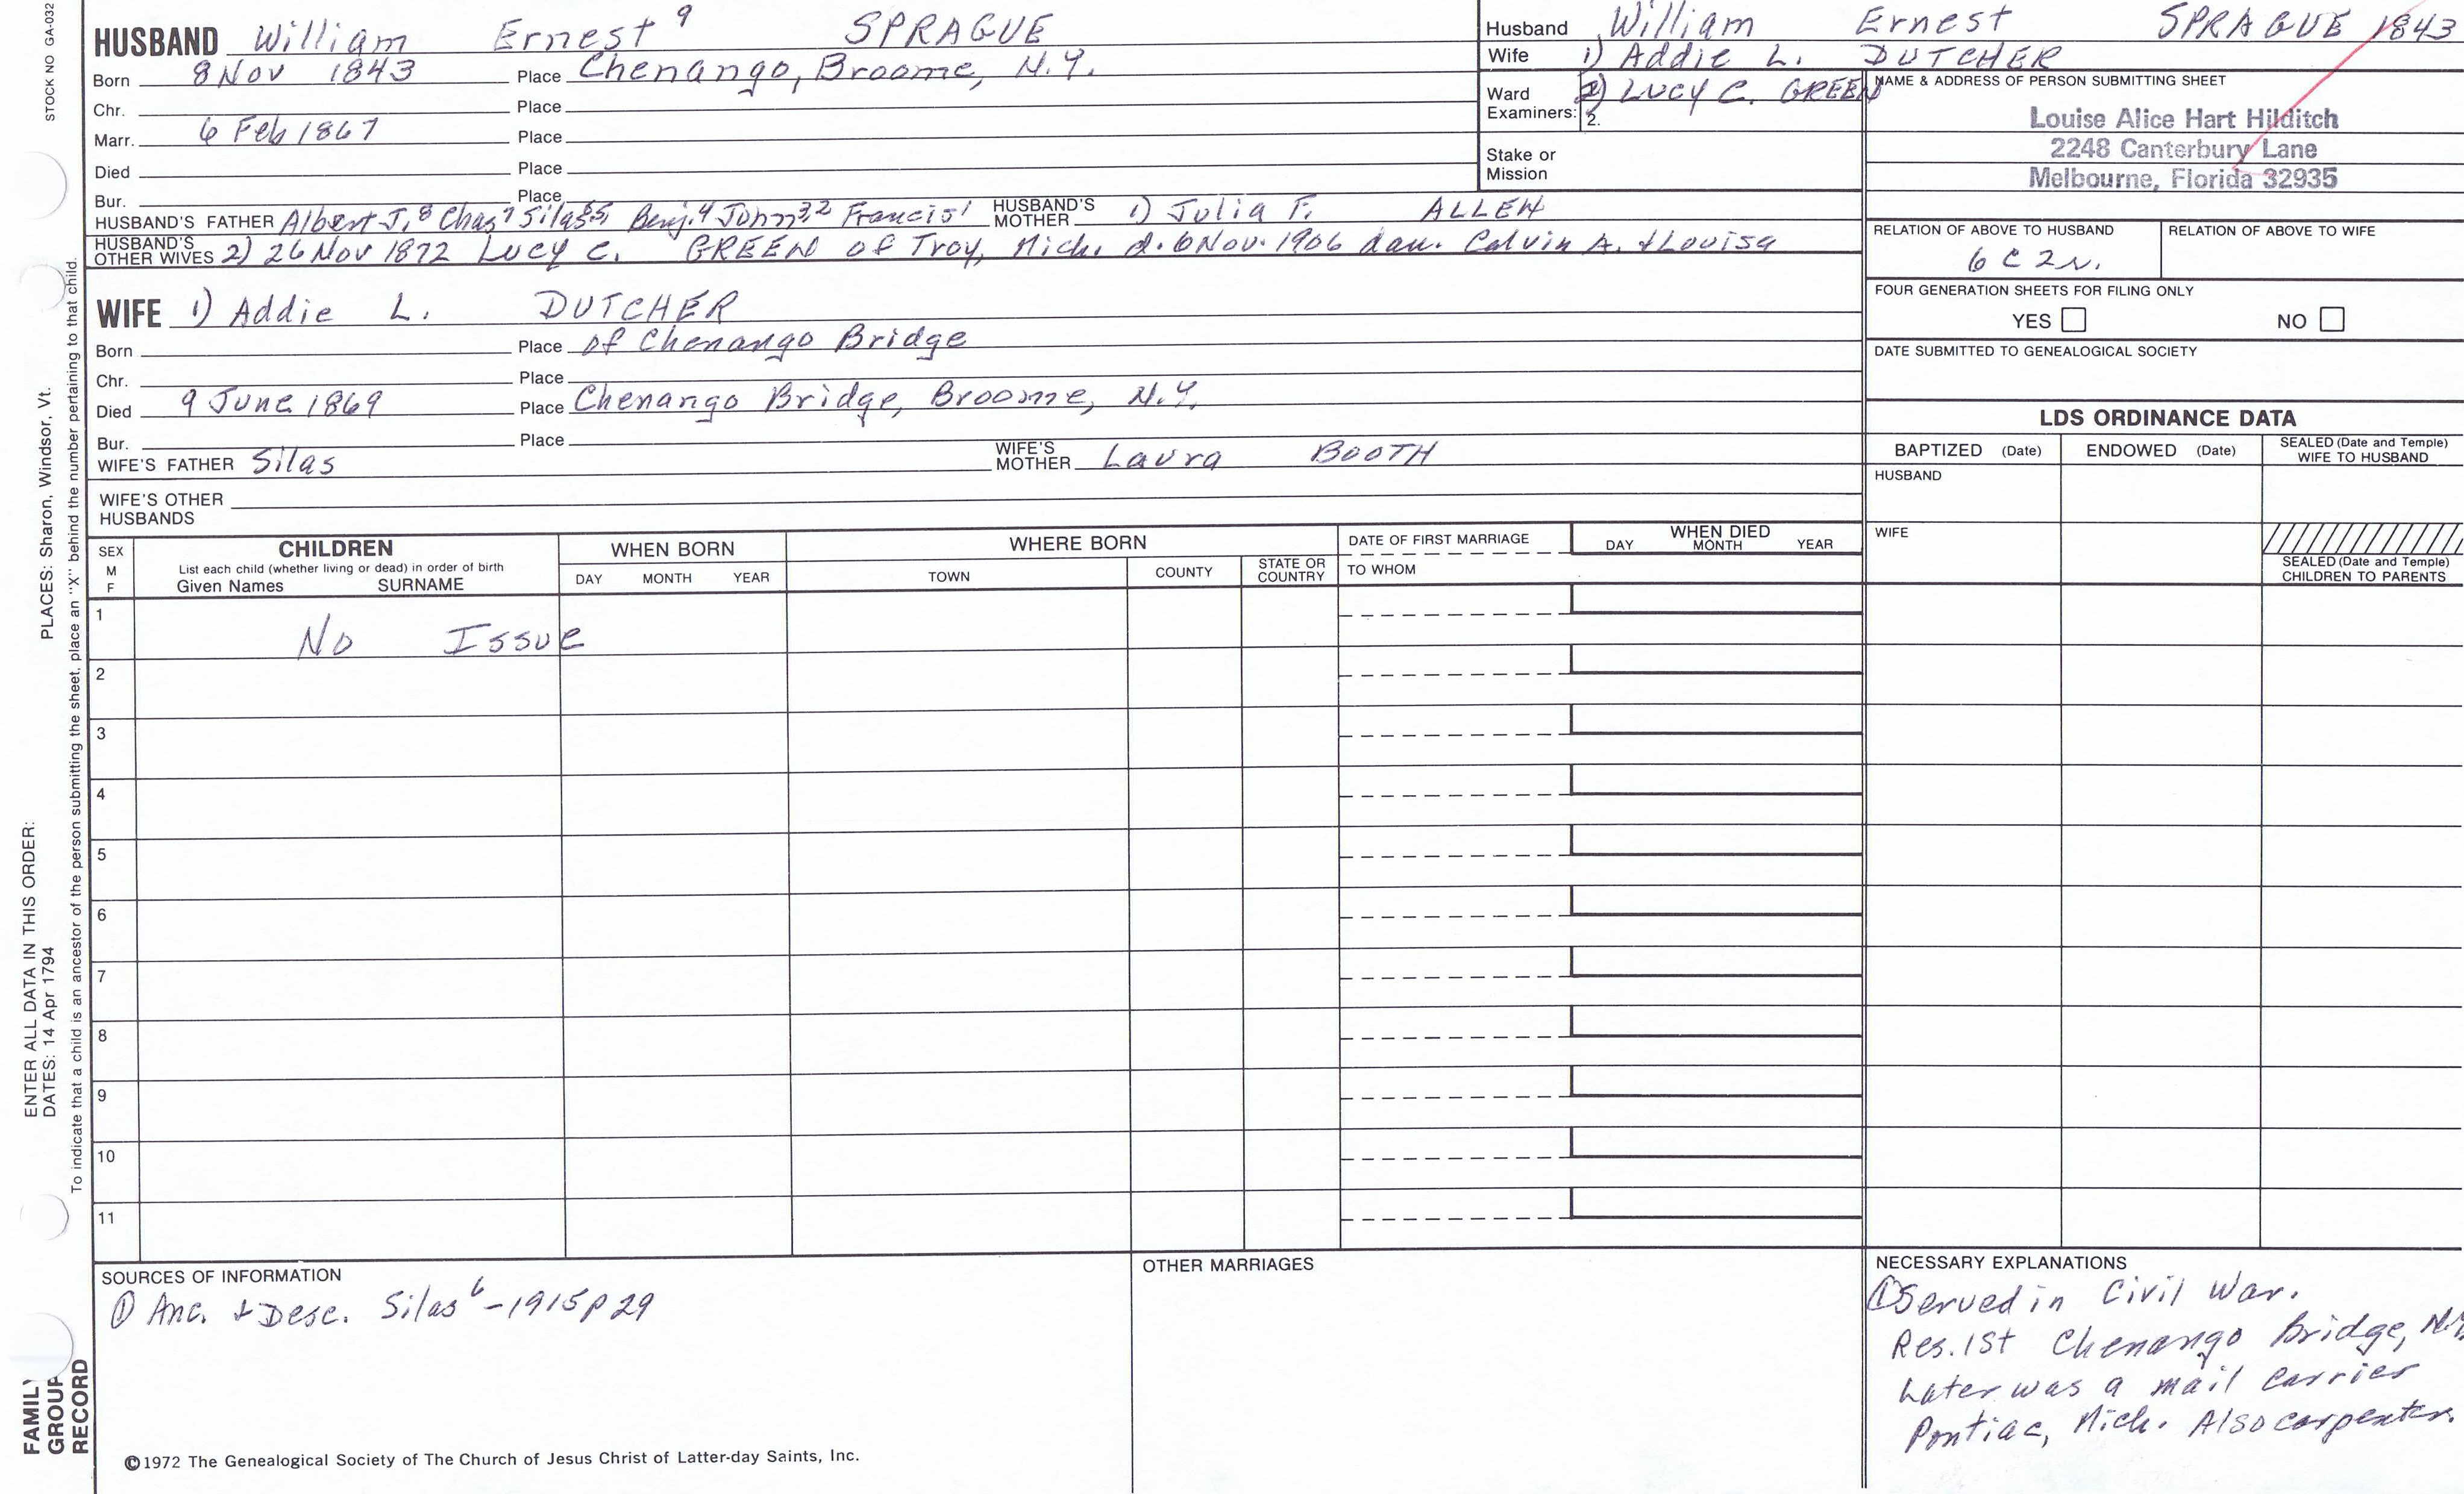 STOCK NO GA-032
PLACES: Sharon, Windsor, Vt.
ENTER ALL DATA IN THIS ORDER:
DATES: 14 Apr 1794
To indicate that a child is an ancestor of the person submitting the sheet, place an "X" behind the number pertaining to that child.
FAMILY
GROUP
RECORD
HUSBAND William Ernest 9 SPRAGUE
Born 8 Nov 1843 Place Chenango, Broome, N.Y.
Chr. Place
Marr. 6 Feb 1867 Place
Died Place
Bur. Place
HUSBAND'S FATHER Albert J.8 Chas7 Silas6,5 Benj.4 John3,2 Francis1 HUSBAND'S MOTHER 1) Julia F. ALLEN
HUSBAND'S OTHER WIVES 2) 26 Nov 1872 Lucy C. GREEN of Troy, Mich. d. 6 Nov. 1906 dau. Calvin A. + Louisa
WIFE 1) Addie L. DUTCHER
Born Place of Chenango Bridge
Chr. Place
Died 9 June 1869 Place Chenango Bridge, Broome, N.Y.
Bur. Place
WIFE'S FATHER Silas WIFE'S MOTHER Laura BOOTH
WIFE'S OTHER
HUSBANDS
Husband William Ernest SPRAGUE 1843
Wife 1) Addie L. DUTCHER
Ward
Examiners: 2) LUCY C. GREEN
2.
Stake or
Mission
NAME & ADDRESS OF PERSON SUBMITTING SHEET
Louise Alice Hart Hilditch
2248 Canterbury Lane
Melbourne, Florida 32935
RELATION OF ABOVE TO HUSBAND RELATION OF ABOVE TO WIFE
6 C 2 r.
FOUR GENERATION SHEETS FOR FILING ONLY
YES NO
DATE SUBMITTED TO GENEALOGICAL SOCIETY
LDS ORDINANCE DATA
BAPTIZED (Date) ENDOWED (Date) SEALED (Date and Temple) WIFE TO HUSBAND
HUSBAND
WIFE
SEALED (Date and Temple)
CHILDREN TO PARENTS
SEX
M
F
CHILDREN
List each child (whether living or dead) in order of birth
Given Names SURNAME
WHEN BORN
DAY MONTH YEAR
WHERE BORN
TOWN COUNTY STATE OR COUNTRY
DATE OF FIRST MARRIAGE
TO WHOM
WHEN DIED
DAY MONTH YEAR
1
No Issue
2
3
4
5
6
7
8
9
10
11
SOURCES OF INFORMATION
① Anc. + Desc. Silas6 - 1915 p 29
OTHER MARRIAGES
NECESSARY EXPLANATIONS
① Served in Civil War.
Res. 1st Chenango Bridge, N.Y.
Later was a mail carrier
Pontiac, Mich. Also carpenter.
©1972 The Genealogical Society of The Church of Jesus Christ of Latter-day Saints, Inc.